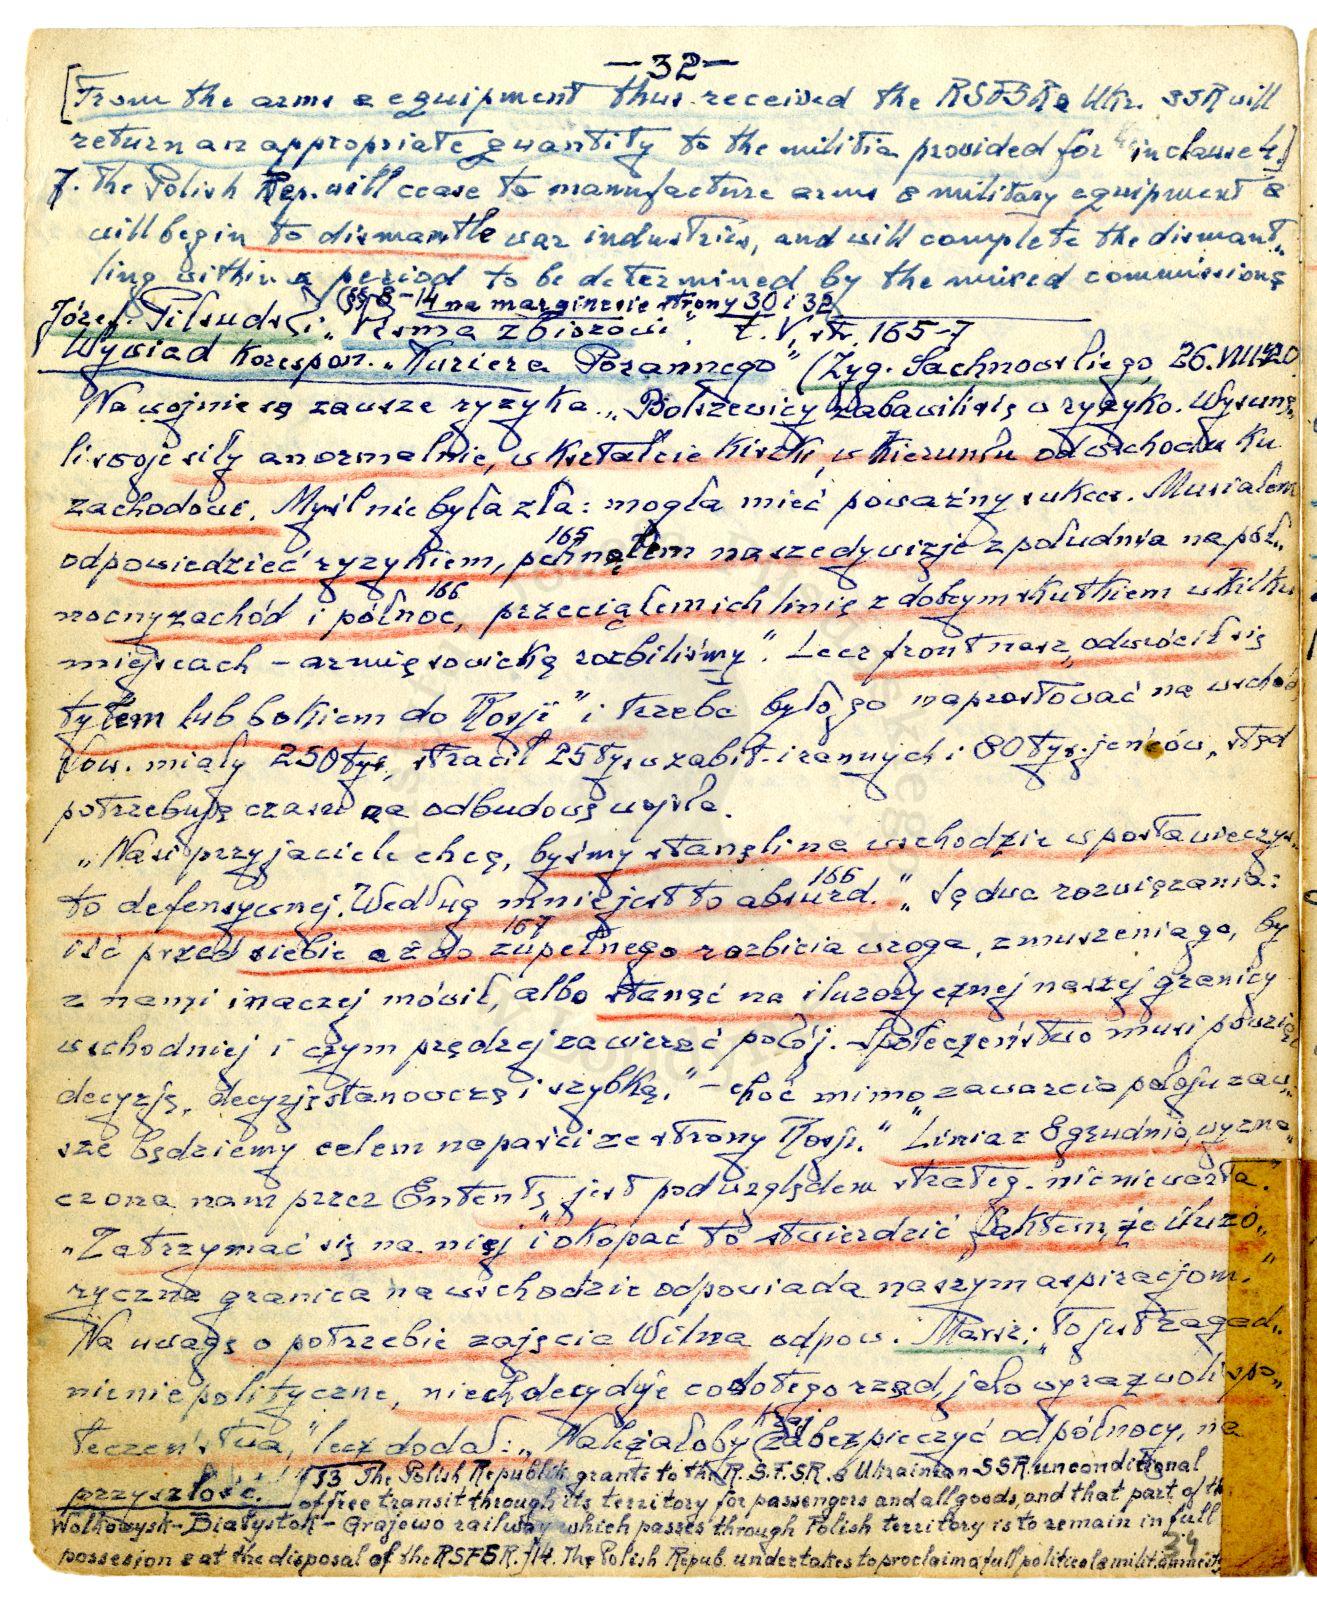 —32—
[From the arms & equipment thus received the RSFSR & Ukr. SSR will
return an appropriate quantity to the militia provided for in clause 4.]
7. The Polish Rep. will cease to manufacture arms & military equipment &
will begin to dismantle war industries, and will complete the dismant„
ling within a period to be determined by the mixed commissions
(§§ 8–14 na marginesie strony 30 i 32
Józef Piłsudski „Pisma zbiorowe" t. V, str. 165–7
Wywiad korespon. „Kuriera Porannego" (Zyg. Sachnowskiego, 26.VIII.20
Na wojnie są zawsze ryzyka. „Bolszewicy zabawili się w ryzyko. Wysunę„
li swoje siły anormalnie, w kształcie kiszki, w kierunku od wschodu ku
zachodowi. Myśl nie była zła: mogła mieć poważny sukces. Musiałem
odpowiedzieć ryzykiem, pchnąłem nasze dywizje z południa na pół„
165
nocny zachód i północ, przeciąłem ich linię z dobrym skutkiem w kilku
166
miejscach – armię sowiecką rozbiliśmy". Lecz front nasz „odwrócił się
tyłem lub bokiem do Rosji" i trzeba było go naprostować na wschód
Sow. miały 250 tys., stracił 25 tys. w zabit. i rannych i 80 tys. jeńców, stąd
potrzebują czasu na odbudowę wojska.
„Nasi przyjaciele chcą, byśmy stanęli na wschodzie w postawie czys„
to defensywnej. Według mnie jest to absurd." „Są dwa rozwiązania:
166
iść przed siebie aż do zupełnego rozbicia wroga, zmuszenia go, by
167
z nami inaczej mówił, albo stanąć na iluzorycznej naszej granicy
wschodniej i czym prędzej zawierać pokój. Społeczeństwo musi powziąć
decyzję, decyzję stanowczą i szybką." – choć mimo zawarcia pokoju zaw„
sze będziemy celem napaści ze strony Rosji." „Linia z 8 grudnia, wyzna„
czona nam przez Ententę jest pod względem strateg. nic nie warta."
„Zatrzymać się na niej i okopać to stwierdzić faktem, że iluzo„
ryczna granica na wschodzie odpowiada naszym aspiracjom."
Na uwagę o potrzebie zajęcia Wilna odpow. Marsz.: „to jest zagad„
nienie polityczne, niech decyduje co do tego rząd, jako wyraz woli spo„
łeczeństwa," lecz dodał: „Należałoby kraj zabezpieczyć od północy, na
przyszłość.
[§13 The Polish Republic grants to the R.S.F.S.R. & Ukrainian SSR unconditional
of free transit through its territory for passengers and all goods, and that part of the
Wolkowysk–Białystok–Grajewo railway which passes through Polish territory is to remain in full
possesion & at the disposal of the RSFSR. §14. The Polish Repub. undertakes to proclaim a full political & milit. amnesty
34